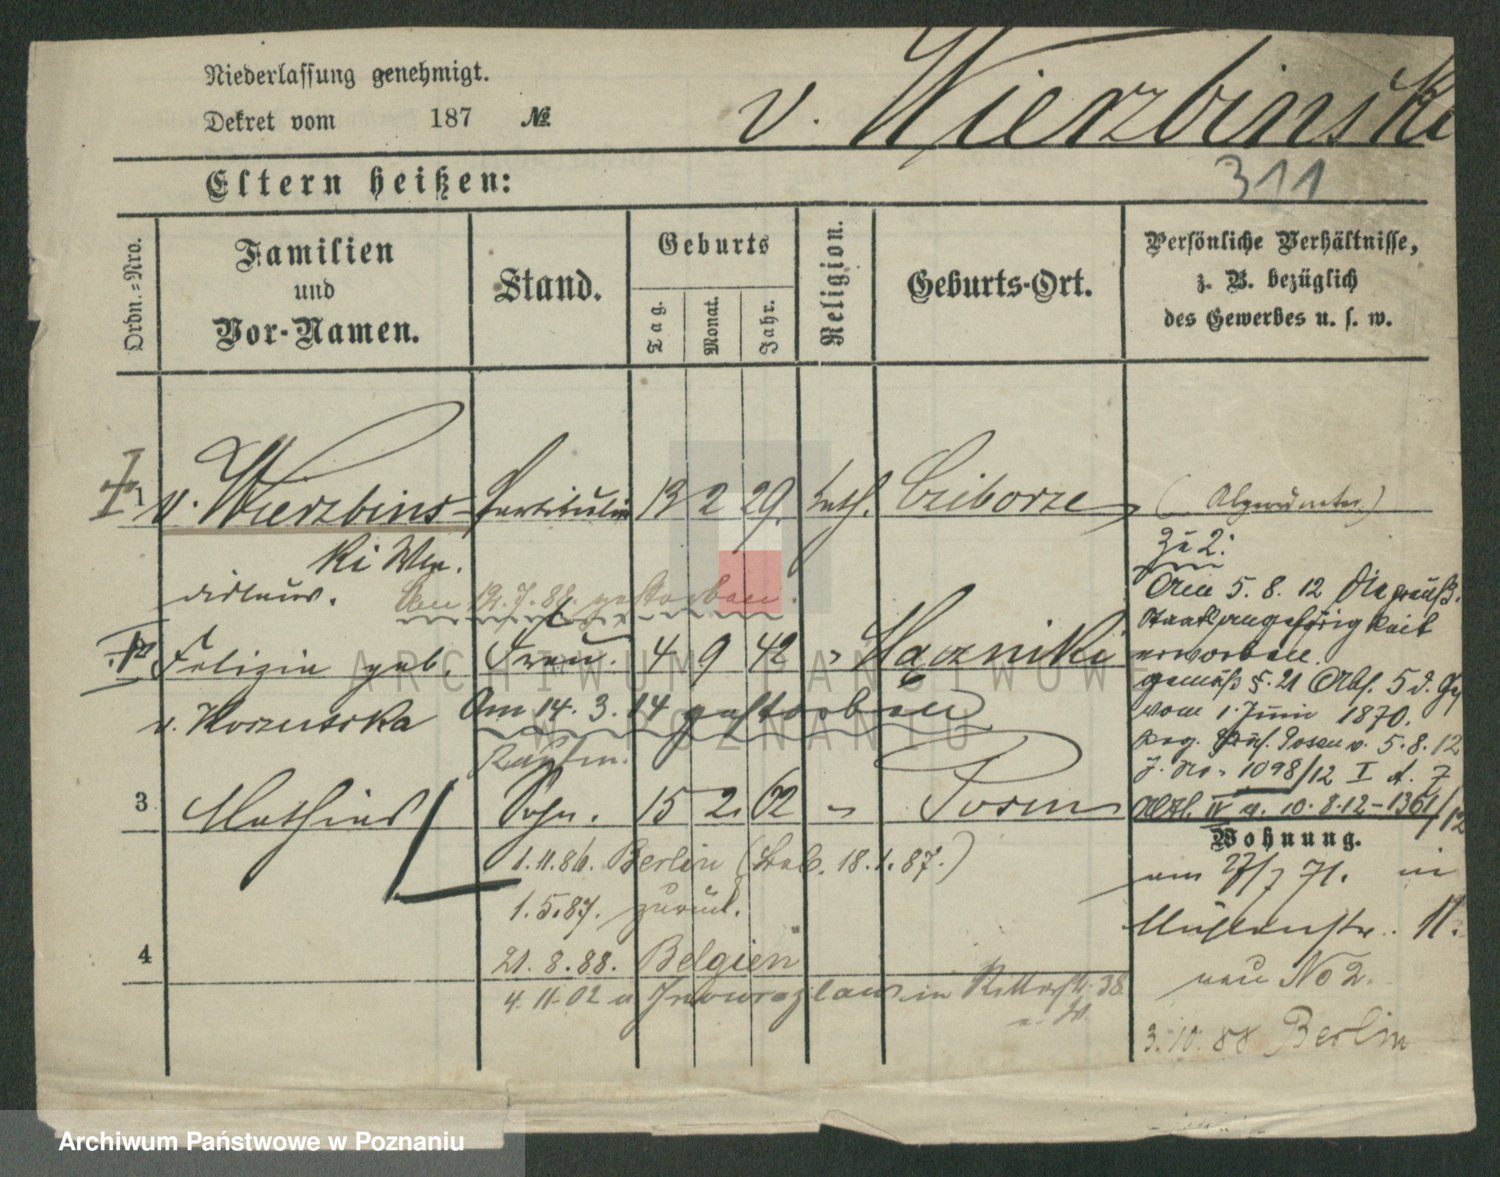 Niederlassung genehmigt.
Dekret vom 187 №
v. Wierzbinski
311
Eltern heißen:
Ordn.-Nro.
Familien
und
Vor-Namen.
Stand.
Geburts
Tag.
Monat.
Jahr.
Religion.
Geburts-Ort.
Persönliche Verhältnisse,
z. B. bezüglich
des Gewerbes u. s. w.
1 v. Wierzbins- 13 2 29. kath.
ki
Am 12.7.88. gestorben.
Felizia geb. Frau. 4 9 42 "
v. Am 14. 3. 14 gestorben
3 Mathias Sohn. 15 2. 62 " Posen
1.11.86. Berlin ( 18.1.87.)
1.5.87. zurück.
4 21.8.88. Belgien
4.11.02 n Inowrazlaw in Ritterstr. 38
Zu 2:
Am 5. 8. 12 Die preuß.
Staatsangehörigkeit
erworben
gemäß §. 21 Abs. 5 d.
vom 1. Juni 1870.
Posen v. 5.8.12
J. No. 1098/12 I A. 7
IV v. 10.8.12-1361/12
Wohnung.
am 27/7 71. in
Mühlenstr. 11.
neu No 2.
3.10.88 Berlin
ARCHIWUM PAŃSTWOWE
W POZNANIU
Archiwum Państwowe w Poznaniu